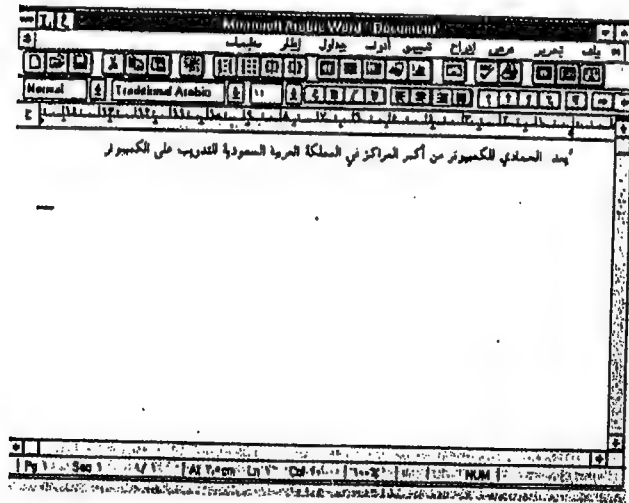 Microsoft Arabic Word - Document1
ملف تحرير عرض إدراج تنسيق أدوات جداول إطار معلومات
Normal Traditional Arabic ١١
يعد الحمادي للكمبيوتر من أكبر المراكز في المملكة العربية السعودية للتدريب على الكمبيوتر
Pg ١ Sec ١ ١/١ At ٢,٥cm Ln ١ Col ١٠٠% NUM